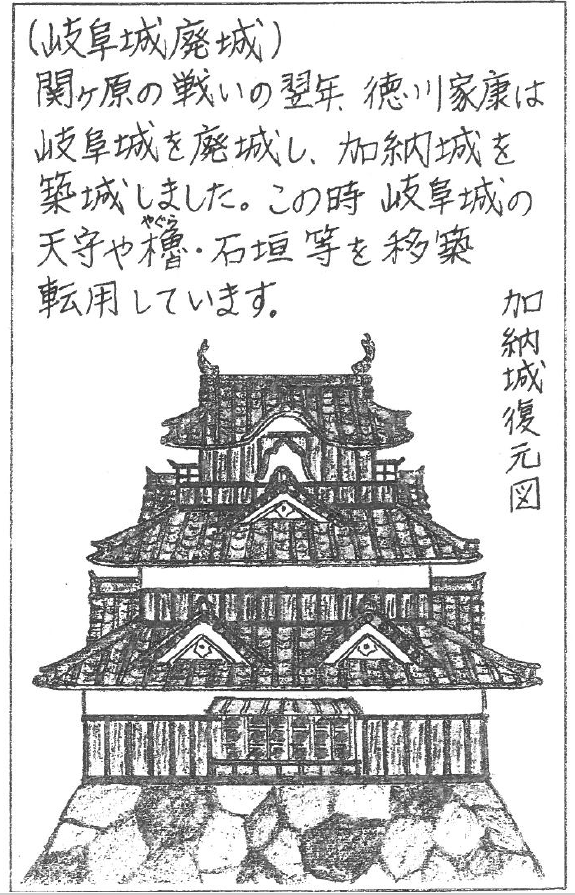 (岐阜城廃城)
関ヶ原の戦いの翌年、徳川家康は
岐阜城を廃城し、加納城を
築城しました。この時 岐阜城の
やぐら
天守や櫓・石垣等を移築
転用しています。
加納城復元図